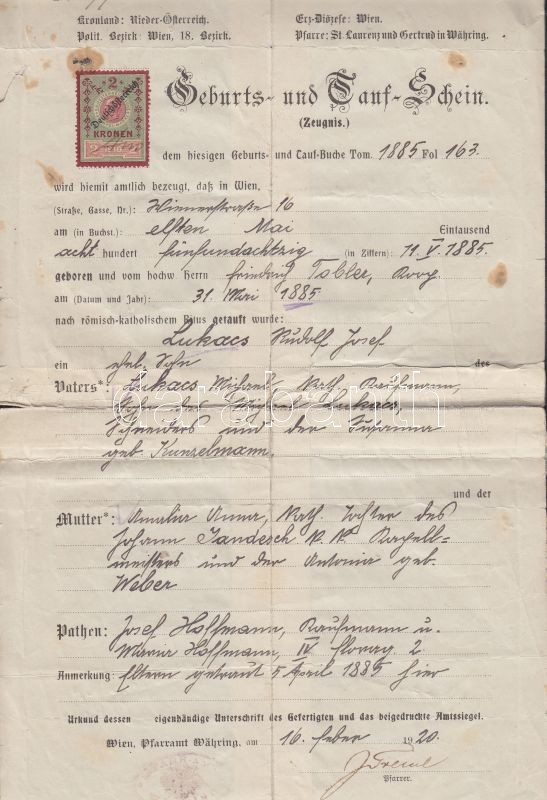 Kronland: Nieder-Österreich.
Erz-Diözese: Wien.
Polit. Bezirk: Wien, 18. Bezirk.
Pfarre: St. Laurenz und Gertrud in Währing.
2
Deutschösterreich
KRONEN
Geburts- und Tauf-Schein.
(Zeugnis.)
dem hiesigen Geburts- und Tauf-Buche Tom. 1885 Fol 163.
wird hiemit amtlich bezeugt, daß in Wien,
(Straße, Gasse, Nr.): Wienerstraße 16
am (in Buchst.): elften Mai Eintausend
acht hundert fünfundachtzig (in Ziffern): 11. V. 1885.
geboren und vom hochw. Herrn Friedrich Tobler, Koop.
am (Datum und Jahr): 31. Mai 1885
nach römisch-katholischem Ritus getauft wurde:
Lukacs Rudolf Josef
ein ehel. Sohn des
Vaters*: Lukacs Michael, Kath. Kaufmann,
Sohn des Michael Lukacs,
Schneiders und der Susanna
geb. Kunzelmann.
und der
Mutter*: Amalia Anna, Kath. Tochter des
Johann Jandesch k. k. Kapell-
meisters und der Antonia geb.
Weber
Pathen: Josef Hoffmann, Kaufmann u.
Hoffmann, IV 2
Anmerkung: Eltern getraut 5 April 1885 hier
Urkund dessen eigenhändige Unterschrift des Gefertigten und das beigedruckte Amtssiegel.
Wien, Pfarramt Währing, am 16. Feber 1920.
Pfarrer.